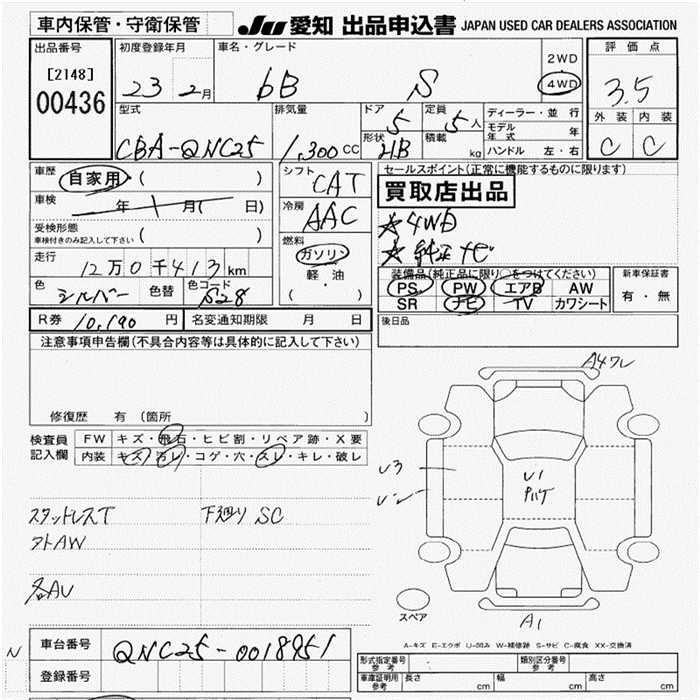 車内保管・守衛保管
JU 愛知 出品申込書 JAPAN USED CAR DEALERS ASSOCIATION
出品番号 初度登録年月 車名・グレード 評価点
[2148] 23 2月 bB S 2WD 4WD 3.5
00436
外装 内装
C C
型式 排気量 ドア 定員 ディーラー・並行
5 5人 モデル年式 年
CBA-QNC25 1,300CC 形状 HB 積載 kg ハンドル 左・右
車歴 自家用 ( )
シフト CAT
セールスポイント(正常に機能するものに限ります)
買取店出品
車検 年 月( 日)
冷房 AAC
☆4WD
受検形態 ( )
車検付きのみ記入して下さい
☆純正ナビ
走行 12万0千413km
燃料 ガソリン
軽・油
( ・ )
装備品(純正品に限り○をつけてください) 新車保証書
PS PW エアB AW 有・無
SR ナビ TV カワシート
色 シルバー 色替 色コード S28
R券 10,190円 名変通知期限 月 日
後日品
注意事項申告欄(不具合内容等は具体的に記入して下さい)
修復歴 有 (箇所 )
検査員記入欄
FW キズ・飛石・ヒビ割・リペア跡・X要
内装 キズ・汚レ・コゲ・穴・スレ・キレ・破レ
スタッドレスT 下廻り SC
AU
A4フレ
U3
U1
A1
スペア
A-キズ E-エクボ U-凹み W-補修跡 S-サビ C-腐食 XX-交換済
N
車台番号 QNC25-0018951
登録番号
形式指定番号 参考 類別区分番号 参考
車庫証明用 参考 長さ cm 幅 cm 高さ cm